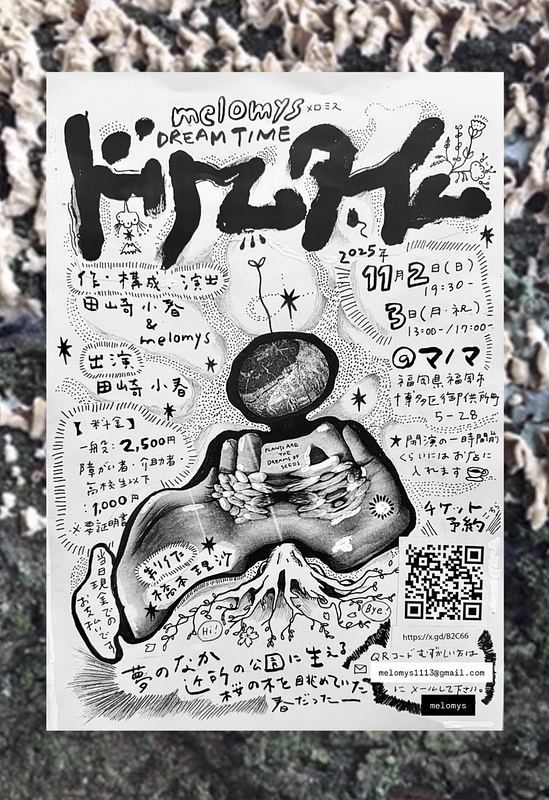 melomys メロミス
DREAM TIME
ドリームタイム
作・構成・演出
田山奇 小春
&
melomys
出演
田山奇 小春
【料金】
一般：2,500円
障がい者・介助者・
高校生以下
：1,000円
※要証明書
当日現金での
お支払いです
2025年
11月2日(日)
19:30-
3日(月・祝)
13:00-/19:00-
@マノマ
福岡県福岡市
博多区御供所町
5-28
★開演の一時間前
くらいにはお店に
入れます
チケット
予約
https://x.gd/B2C66
QRコードむずかしい方は
melomys1113@gmail.com
にメールして下さい。
melomys
PLANTS ARE
THE
DREAMS OF
SEEDS
橋本理沙
Hi!
Bye!
夢のなか
近所の公園に生える
桜の木を眺めていた
春だった—